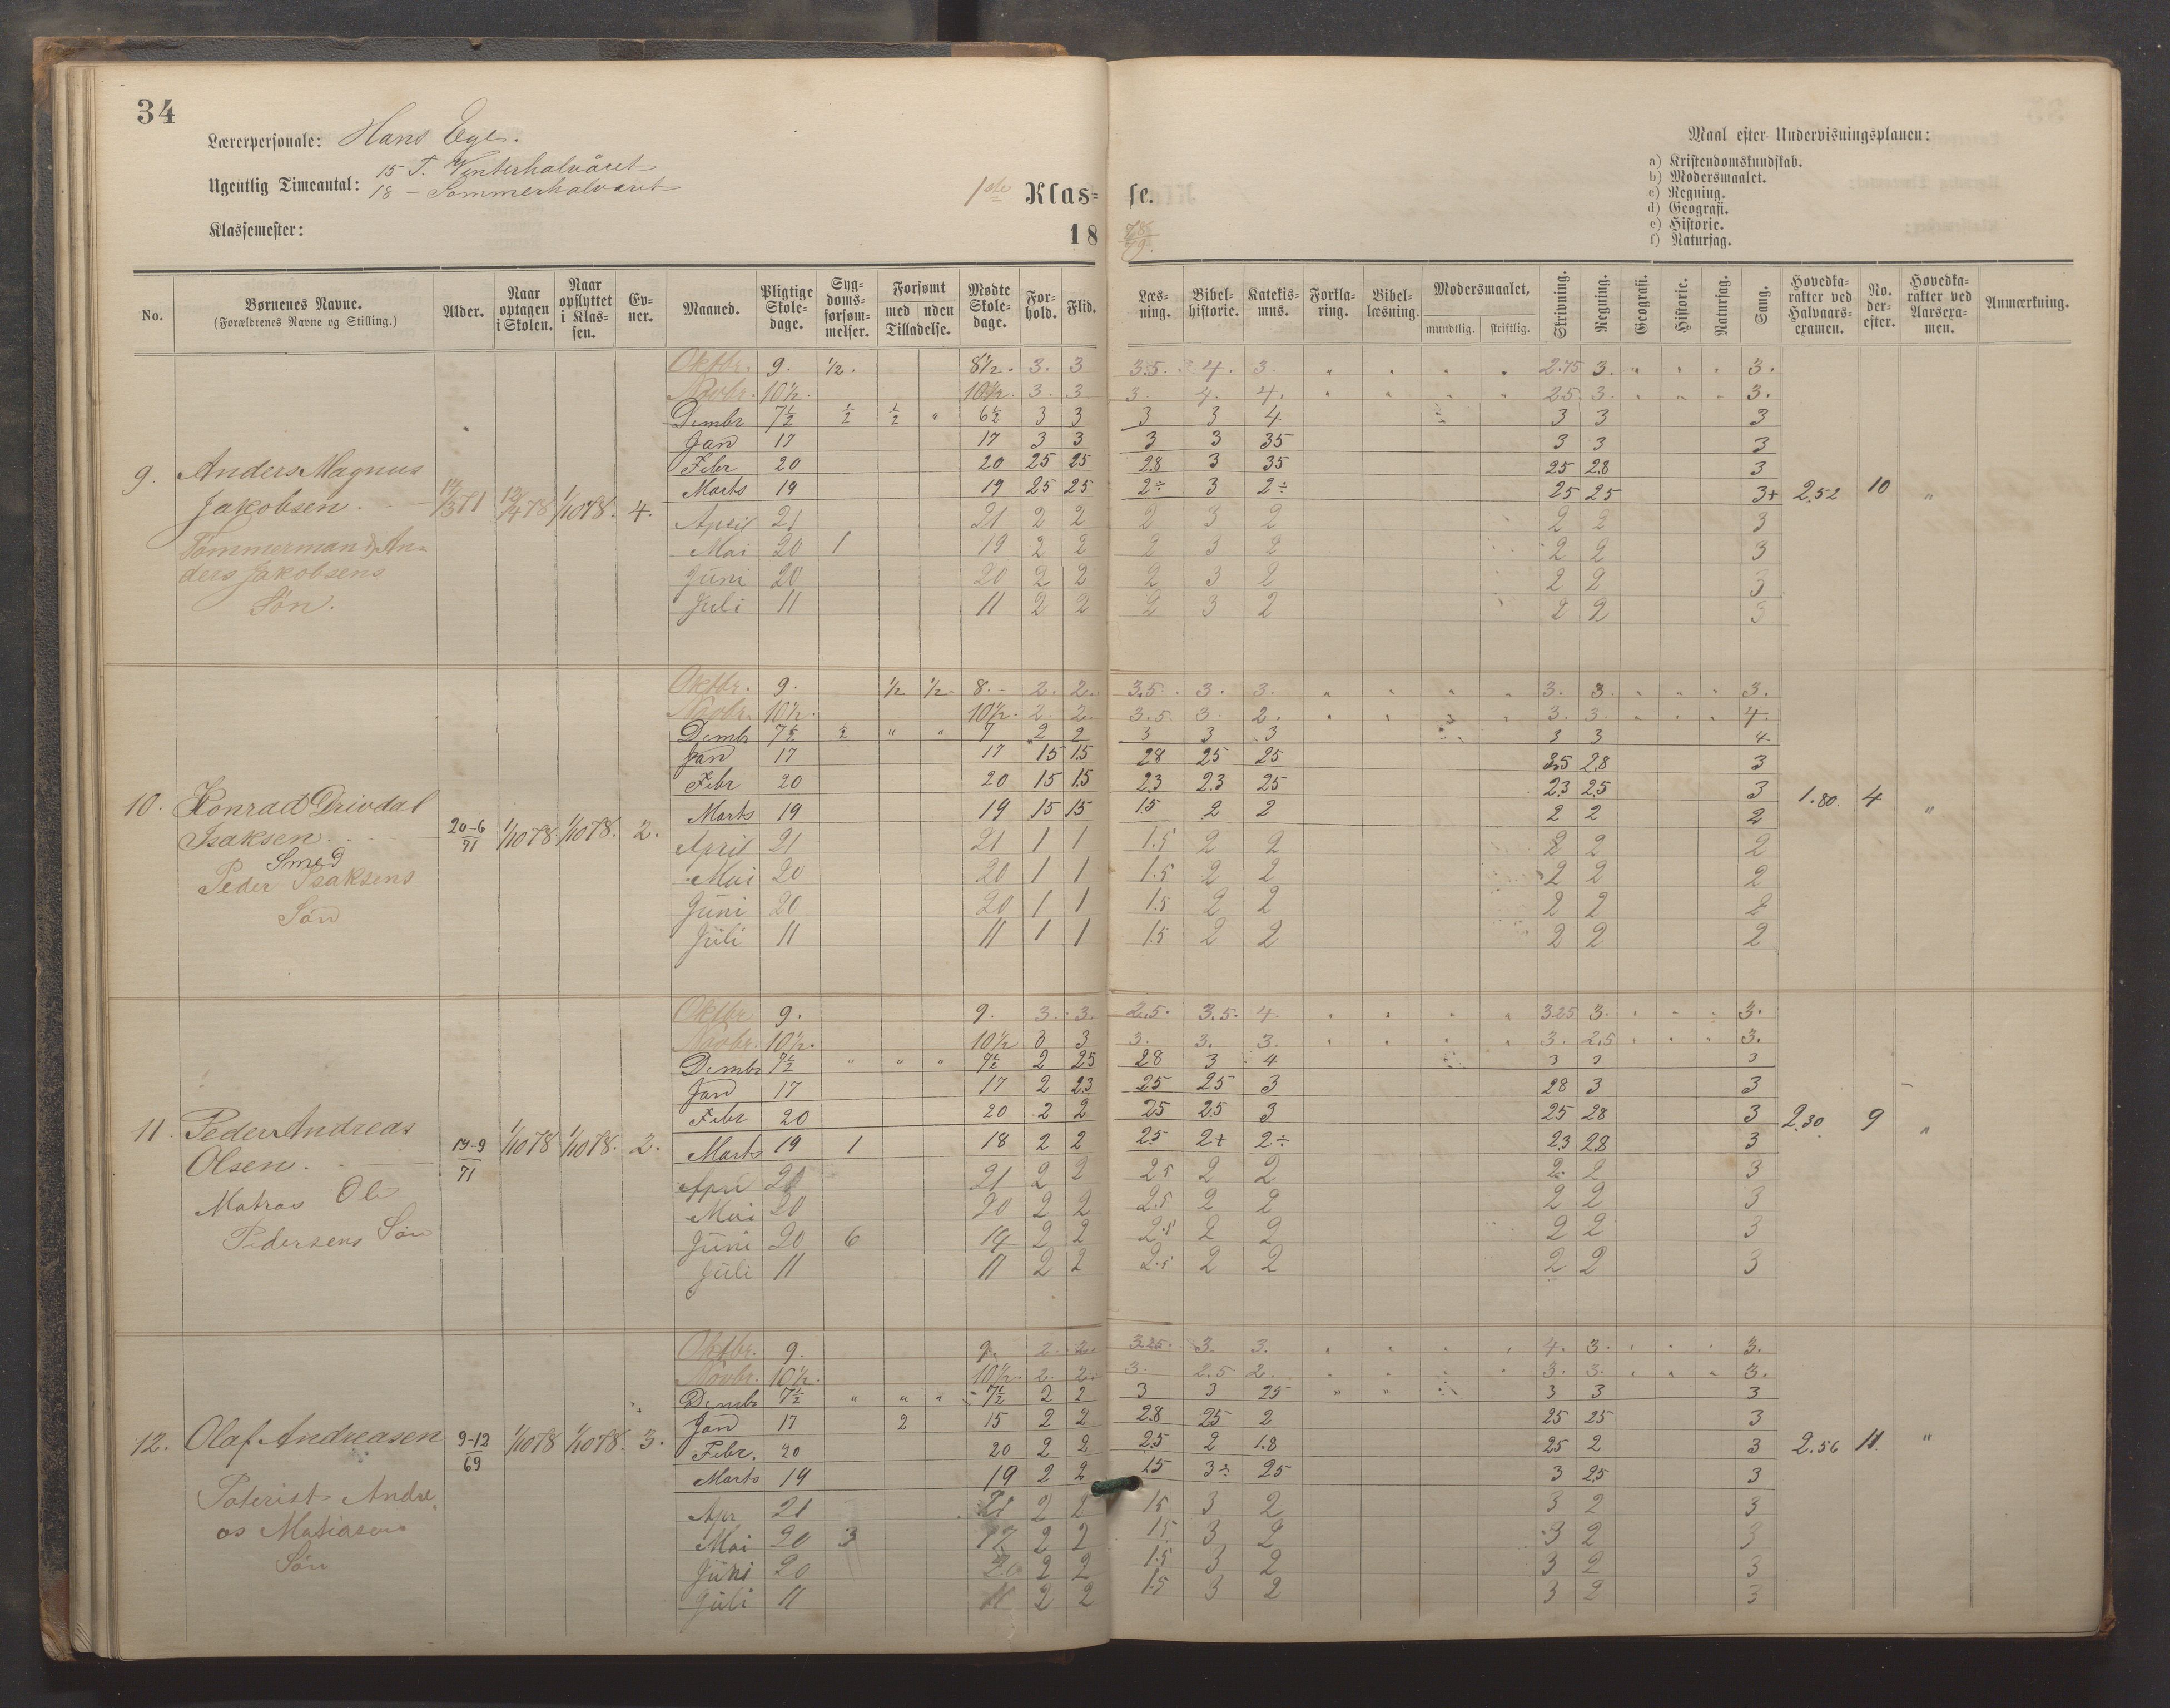 34
Lærerpersonale: Hans Ege.
Ugentlig Timeantal: 15 T. Vinterhalvåret
18 – Sommerhalvaaret
Klassemester:
1ste Klas= se.
18 78/79.
Maal efter Undervisningsplanen:
a) Kristendomskundskab.
b) Modersmaalet.
c) Regning.
d) Geografi.
e) Historie.
f) Naturfag.
No. | Børnenes Navne. (Forældrenes Navne og Stilling.) | Alder. | Naar optagen i Skolen. | Naar opflyttet i Klassen. | Evner. | Maaned. | Pligtige Skoledage. | Sygdomsforsømmelser. | Forsømt med | uden Tilladelse. | Mødte Skoledage. | Forhold. | Flid. | Læsning. | Bibelhistorie. | Katekismus. | Forklaring. | Bibellæsning. | Modersmaalet, mundtlig. | skriftlig. | Skrivning. | Regning. | Geografi. | Historie. | Naturfag. | Sang. | Hovedkarakter ved Halvaarsexamen. | No. derefter. | Hovedkarakter ved Aarsexamen. | Anmærkning.
9. Anders Magnus Jakobsen. Tømmermand Anders Jakobsens Søn. 14/3 71 12/4 78 1/10 78. 4. 2.52 10 "
Oktbr. 9. 1/2. 8 1/2. 3. 3 3.5. 4. 3. " " " " 2.75 3. " " " 3.
Novbr. 10 1/2. 10 1/2. 3. 3. 3. 4. 4. " " " " 2.5. 3. " " " 3.
Dcmbr 7 1/2 1/2 1/2 " 6 1/2 3 3 3 3 4 3 3 3
Jan 17 17 3 3 3 3 35 3 3 3
Febr 20 20 25 25 28 3 35 25 28 3
Marts 19 19 25 25 2÷ 3 2÷ 25 25 3+
April 21 21 2 2 2 3 2 2 2 3
Mai 20 1 19 2 2 2 3 2 2 2 3
Juni 20 20 2 2 2 3 2 2 2 3
Juli 11 11 2 2 2 3 2 2 2 3
10. Konrad Drivdal Isaksen. Smed Peder Isaksens Søn 20-6 71 1/10 78. 1/10 78. 2. 1.80. 4 "
Oktbr. 9. 1/2 1/2 8. 2. 2. 3.5. 3. 3. " " " " 3. 3. " " " 3.
Novbr. 10 1/2. 10 1/2. 2. 2. 3.5. 3. 2. " " " 3. 3. " " " 4.
Dcmbr 7 1/2 1/2 " " 7 2 2 3 3 3 3 3 4
Jan 17 17 15 15 28 25 25 35 28 3
Febr 20 20 15 15 23 23 25 23 25 3
Marts 19 19 15 15 15 2 2 2 2 2
April 21 21 1 1 1.5 2 2 2 2 2
Mai 20 20 1 1 1.5 2 2 2 2 2
Juni 20 20 1 1 1.5 2 2 2 2 2
Juli 11 11 1 1 1.5 2 2 2 2 2
11. Peder Andreas Olsen. Matros Ole Pedersens Søn 19-9 71 1/10 78 1/10 78. 2. 2.30. 9 "
Oktbr 9. 9. 3. 3. 2.5. 3.5. 4. " " " " 3.25 3. " " " 3.
Novbr. 10 1/2. 10 1/2 3 3 3. 3. 3. " " " " 3. 2.5 " " " 3.
Dcmbr 7 1/2 " " " 7 1/2 2 25 28 3 4 3 3 3
Jan 17 17 2 23 25 25 3 28 3 3
Febr 20 20 2 2 25 25 3 25 28 3
Marts 19 1 18 2 2 25 2+ 2÷ 23 28 3
April 21 21 2 2 2.5 2 2 2 2 3
Mai 20 20 2 2 2.5 2 2 2 2 3
Juni 20 6 14 2 2 2.5 2 2 2 2 3
Juli 11 11 2 2 2.5 2 2 2 2 3
12. Olaf Andreasen Andreas Matiasens Søn 9-12 69 1/10 78 1/10 78. 3. 2.56 11. "
Oktbr. 9. 9. 2. 2. 3.25. 3. 3. " " " " 4. 3. " " " 3.
Novbr. 10 1/2. 10 1/2. 2. 2. 3. 2.5 2. " " " " 3. 3. " " " 3.
Dcmbr 7 1/2 " " " 7 1/2 2 2 3 3 25 " " 3 3 3
Jan 17 2 15 2 2 28 25 2 25 25 3
Febr. 20 20 2 2 25 2 1.8 25 2 3
Marts 19 19 2 2 15 3÷ 25 3 25 3
Apr 21 21 2 2 15 3 2 3 2 3
Mai 20 3 17 2 2 15 3 2 3 2 3
Juni 20 20 2 2 1.5 3 2 3 2 3
Juli 11 11 2 2 1.5 3 2 3 2 3